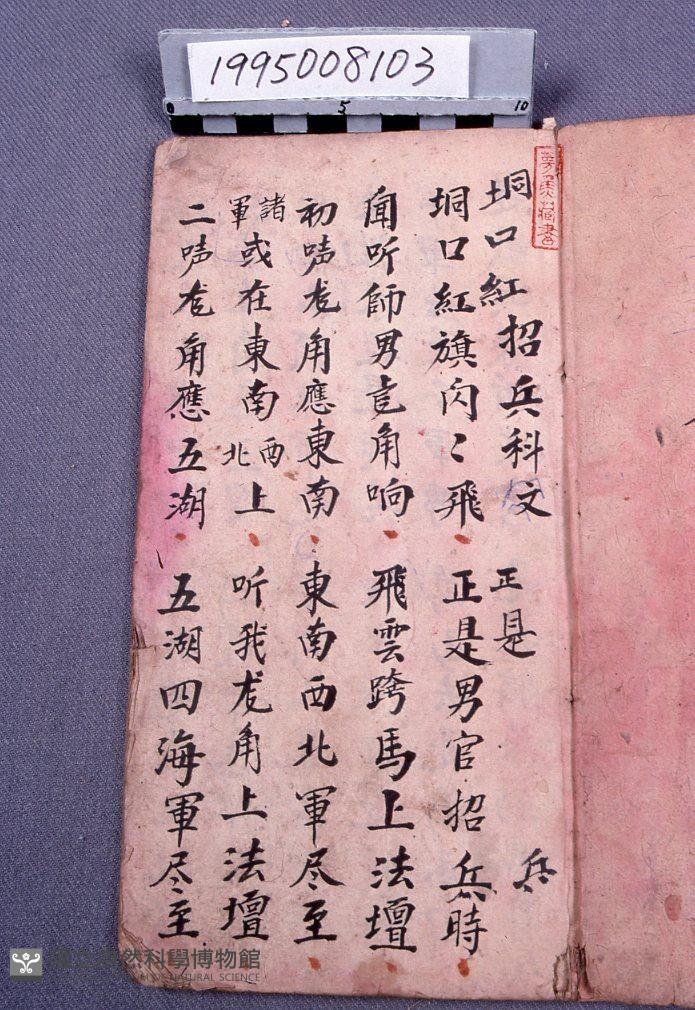 1995008103
0 5 10
垌口紅招兵科文 正是 兵
垌口紅旗闪〻飛 正是男官招兵時
闻听師男竜角响 飛雲跨馬上法壇
初声龙角應東南 東南西北軍尽至
諸軍或在東南西北上 听我龙角上法壇
二声龙角應五湖 五湖四海軍尽至
國立自然科學博物館
NATIONAL MUSEUM OF NATURAL SCIENCE